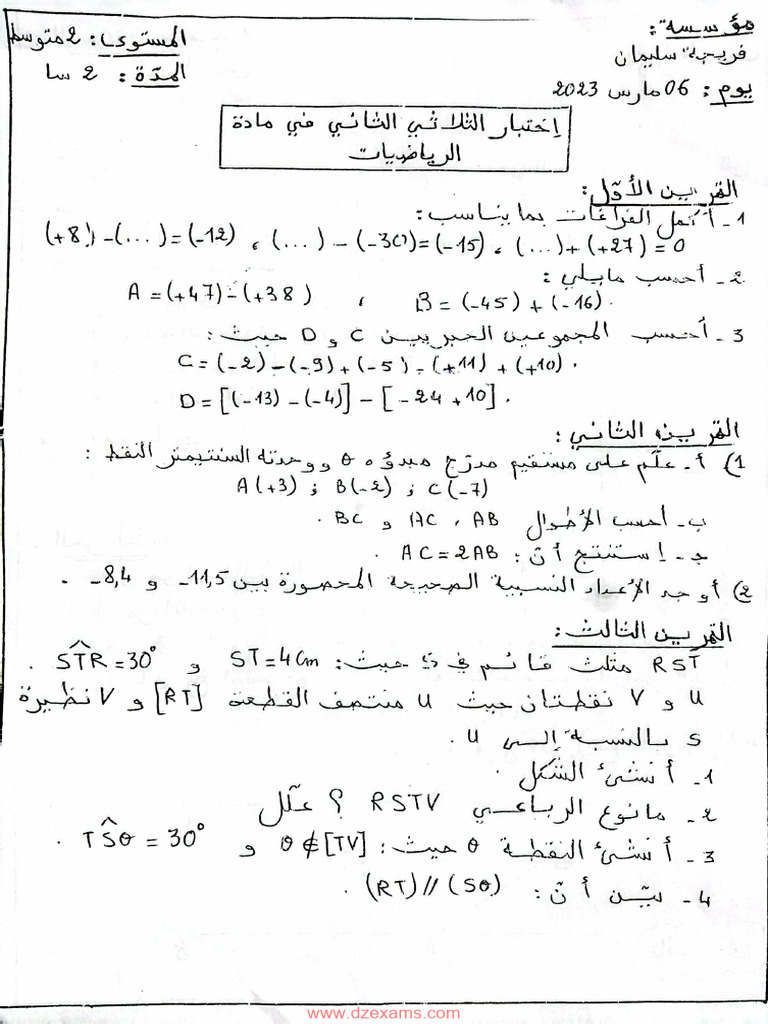 مؤسسة:
فريحة سليمان
يوم: 06 مارس 2023
المستوى: 2 متوسط
المدّة: 2 سا
إختبار الثلاثي الثاني في مادة
الرياضيات
التمرين الأوّل:
1- أكمل الفراغات بما يناسب:
(+8) -(...) = (-12) ، (...) - (-30) = (-15) ، (...) + (+27) = 0
2- أحسب مايلي:
A = (+47) - (+38) ، B = (-45) + (-16).
3- أحسب المجموعين الجبريين C و D حيث:
C = (-2) - (-9) + (-5) - (+11) + (+10).
D = [(-13) - (-4)] - [-24 + 10].
التمرين الثاني:
1) أ- علّم على مستقيم مدرّج مبدؤه O ووحدته السنتيمتر النقط:
A(+3) ; B(-2) ; C(-7)
ب- أحسب الأطوال AB ، AC و BC.
ج- إستنتج أنّ: AC = 2AB.
2) أوجد الأعداد النسبية الصحيحة المحصورة بين -11,5 و -8,4.
التمرين الثالث:
RST مثلث قائم في S حيث: ST = 4cm و STR = 30°.
U و V نقطتان حيث U منتصف القطعة [RT] و V نظيرة
S بالنسبة إلى U.
1- أنشئ الشكل.
2- مانوع الرباعي RSTV ؟ علّل
3- أنشئ النقطة O حيث: O ∉ [TV] و TSO = 30°.
4- بيّن أنّ: (RT) // (SO).
www.dzexams.com